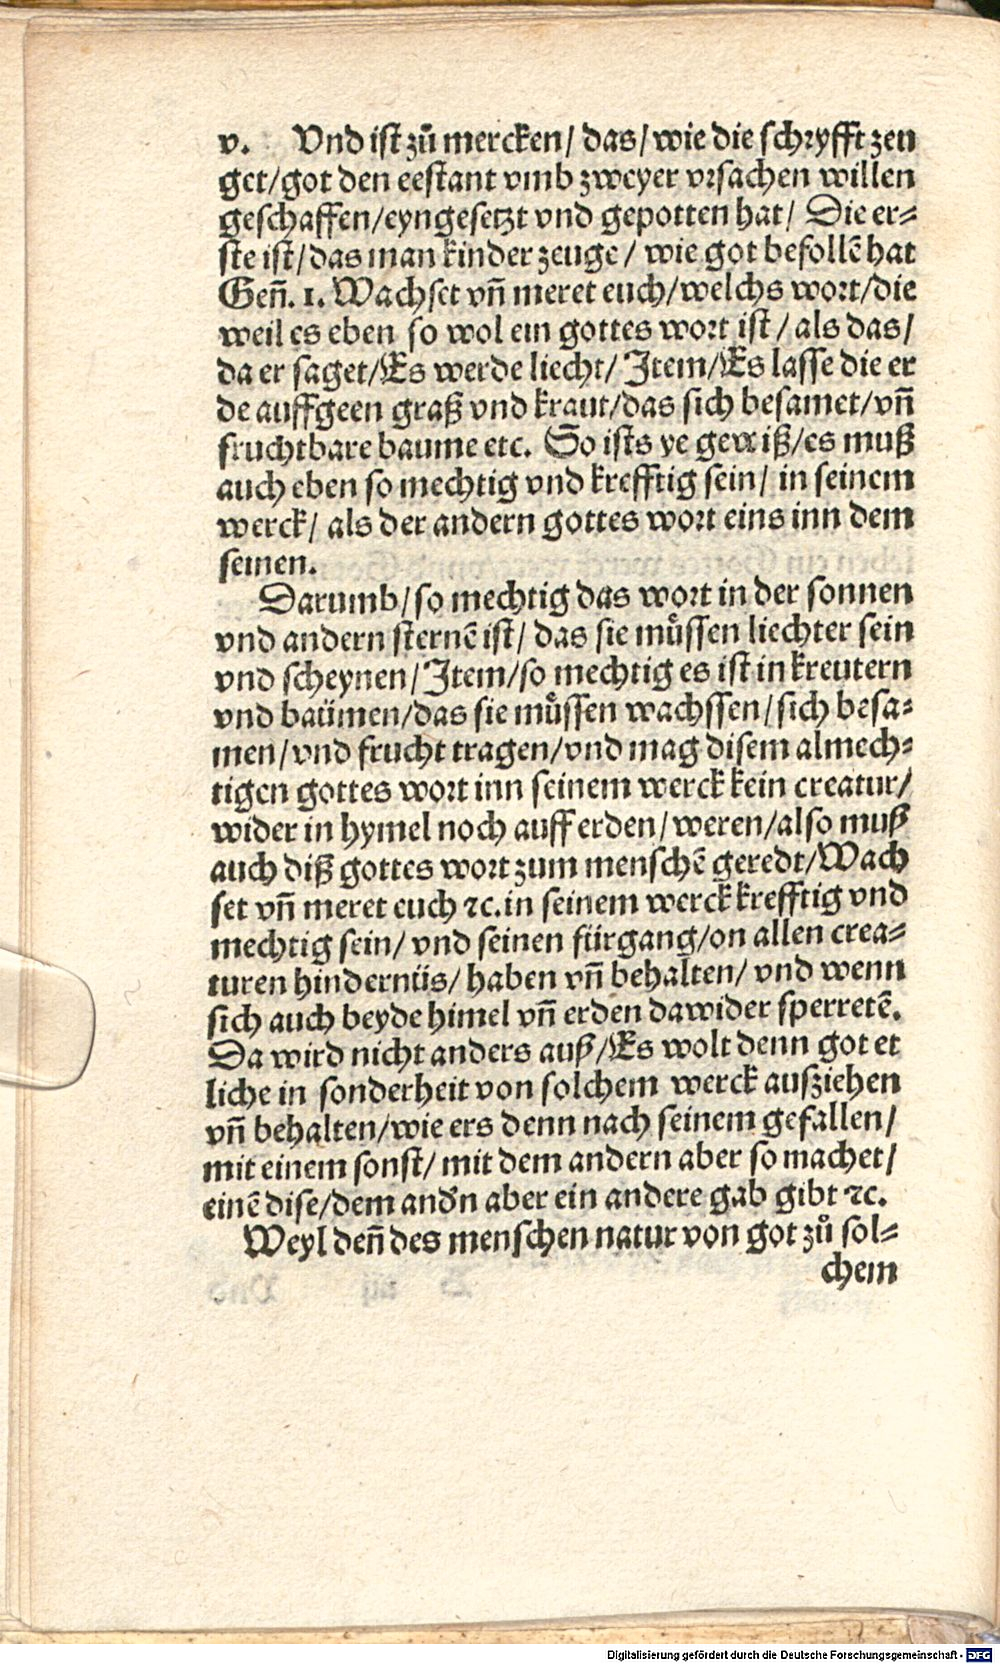 v. Vnd ist zů mercken/ das/ wie die schryfft zeu
get/got den eestant vmb zweyer vrsachen willen
geschaffen/eyngesetzt vnd gepotten hat/ Die er-
ste ist/das man kinder zeuge/ wie got befollẽ hat
Geñ. 1. Wachset vñ meret euch/welchs wort/die
weil es eben so wol ein gottes wort ist/ als das/
da er saget/Es werde liecht/ Item/Es lasse die er
de auffgeen graß vnd kraut/das sich besamet/vñ
fruchtbare baume etc. So ists ye gewiß/es muß
auch eben so mechtig vnd krefftig sein/ in seinem
werck/ als der andern gottes wort eins inn dem
seinen.
Darumb/so mechtig das wort in der sonnen
vnd andern sternẽ ist/ das sie můssen liechter sein
vnd scheynen/Item/so mechtig es ist in kreutern
vnd baümen/das sie můssen wachssen/sich besa-
men/vnd frucht tragen/vnd mag disem almech-
tigen gottes wort inn seinem werck kein creatur/
wider in hymel noch auff erden/weren/also muß
auch diß gottes wort zum menschẽ geredt/Wach
set vñ meret euch ⁊c. in seinem werck krefftig vnd
mechtig sein/ vnd seinen fürgang/on allen crea-
turen hindernüs/ haben vñ behalten/ vnd wenn
sich auch beyde himel vñ erden dawider sperretẽ.
Da wird nicht anders auß/Es wolt denn got et
liche in sonderheit von solchem werck ausziehen
vñ behalten/wie ers denn nach seinem gefallen/
mit einem sonst/ mit dem andern aber so machet/
einẽ dise/dem andn̄ aber ein andere gab gibt ⁊c.
Weyl deñ des menschen natur von got zů sol-
chem
Digitalisierung gefördert durch die Deutsche Forschungsgemeinschaft - DFG